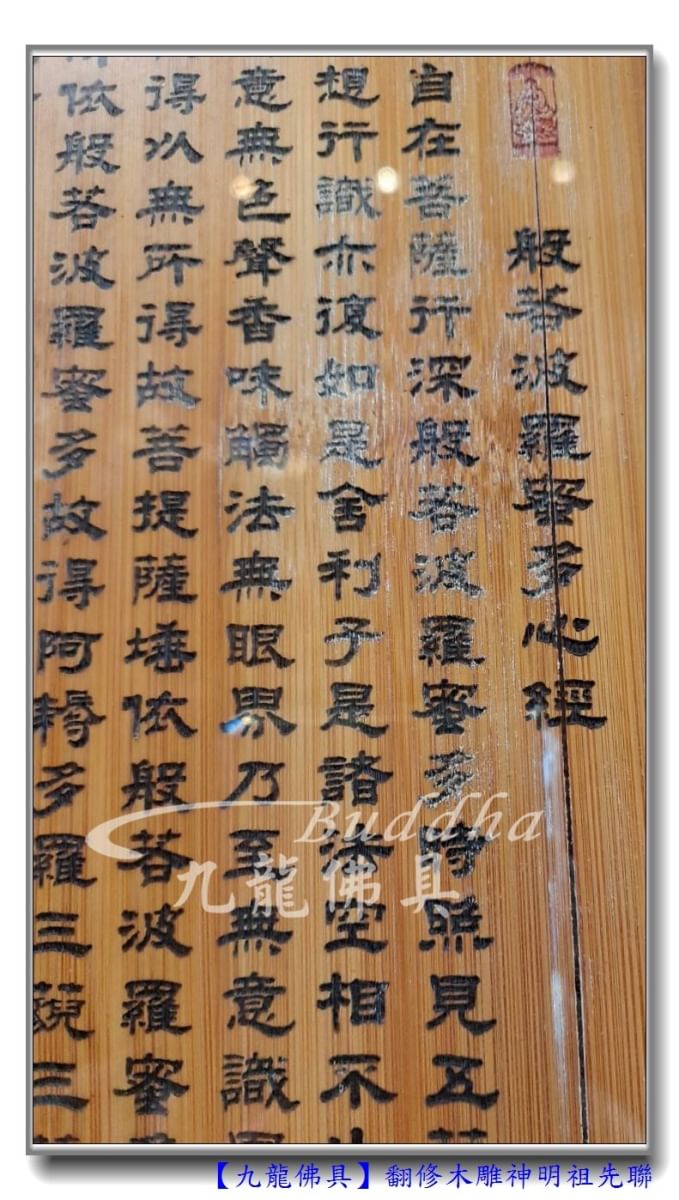 般若波羅蜜多心經
自在菩薩行深般若波羅蜜多時照見五
想行識亦復如是舍利子是諸法空相不
意無色聲香味觸法無眼界乃至無意識
得以無所得故菩提薩埵依般若波羅蜜
依般若波羅蜜多故得阿耨多羅三藐三
Buddha
九龍佛具
【九龍佛具】翻修木雕神明祖先聯